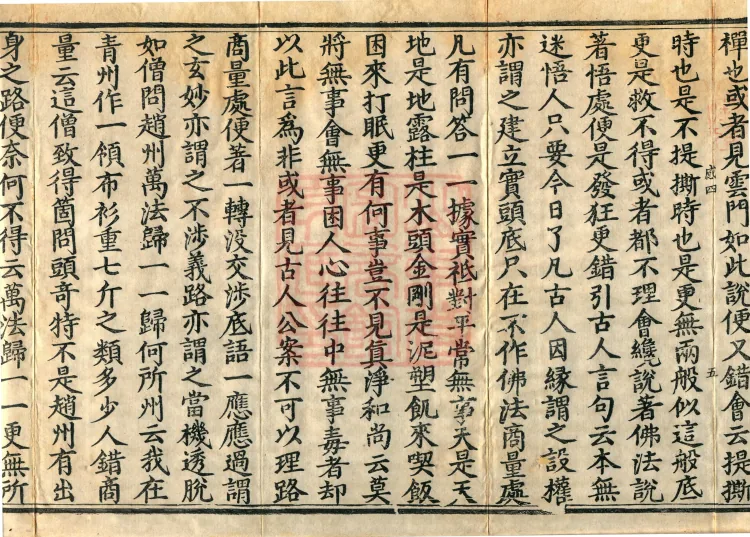 禪也或者見雲門如此說便又錯會云提撕
時也是不提撕時也是更無兩般似這般底
感四
五
更是救不得或者都不理會纔說著佛法說
著悟處便是發狂更錯引古人言句云本無
迷悟人只要今日了凡古人因緣謂之設權
亦謂之建立實頭底只在不作佛法商量處
凡有問答一一據實祗對平常無事天是天
地是地露柱是木頭金剛是泥塑飢來喫飯
困來打眠更有何事豈不見真淨和尚云莫
將無事會無事困人心往往中無事毒者却
以此言為非或者見古人公案不可以理路
商量處便著一轉没交涉底語一應應過謂
之玄妙亦謂之不涉義路亦謂之當機透脫
如僧問趙州萬法歸一一歸何所州云我在
青州作一領布衫重七斤之類多少人錯商
量云這僧致得箇問頭奇特不是趙州有出
身之路便奈何不得云萬法歸一一更無所